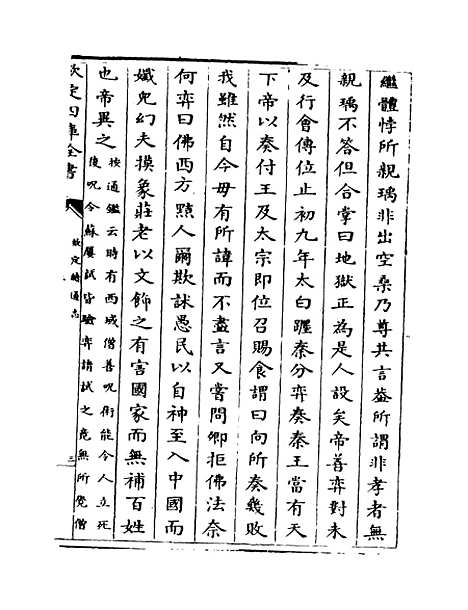 繼體悖所親瑀非出空桑乃尊其言蓋所謂非孝者無
親瑀不答但合掌曰地獄正為是人設矣帝善弈對未
及行會傳位止初九年太白躔秦分弈奏秦王當有天
下帝以奏付王及太宗即位召賜食謂曰向所奏幾敗
我雖然自今毋有所諱而不盡言又嘗問卿拒佛法奈
何弈曰佛西方黠人爾欺訹愚民以自神至入中國而
孅兒幻夫摸象莊老以文飾之有害國家而無補百姓
也帝異之
按通鑑云時有西域僧善呪術能令人立死
復呪令蘇屢試皆驗弈請試之竟無所覺僧
欽定四庫全書
欽定續通志
三